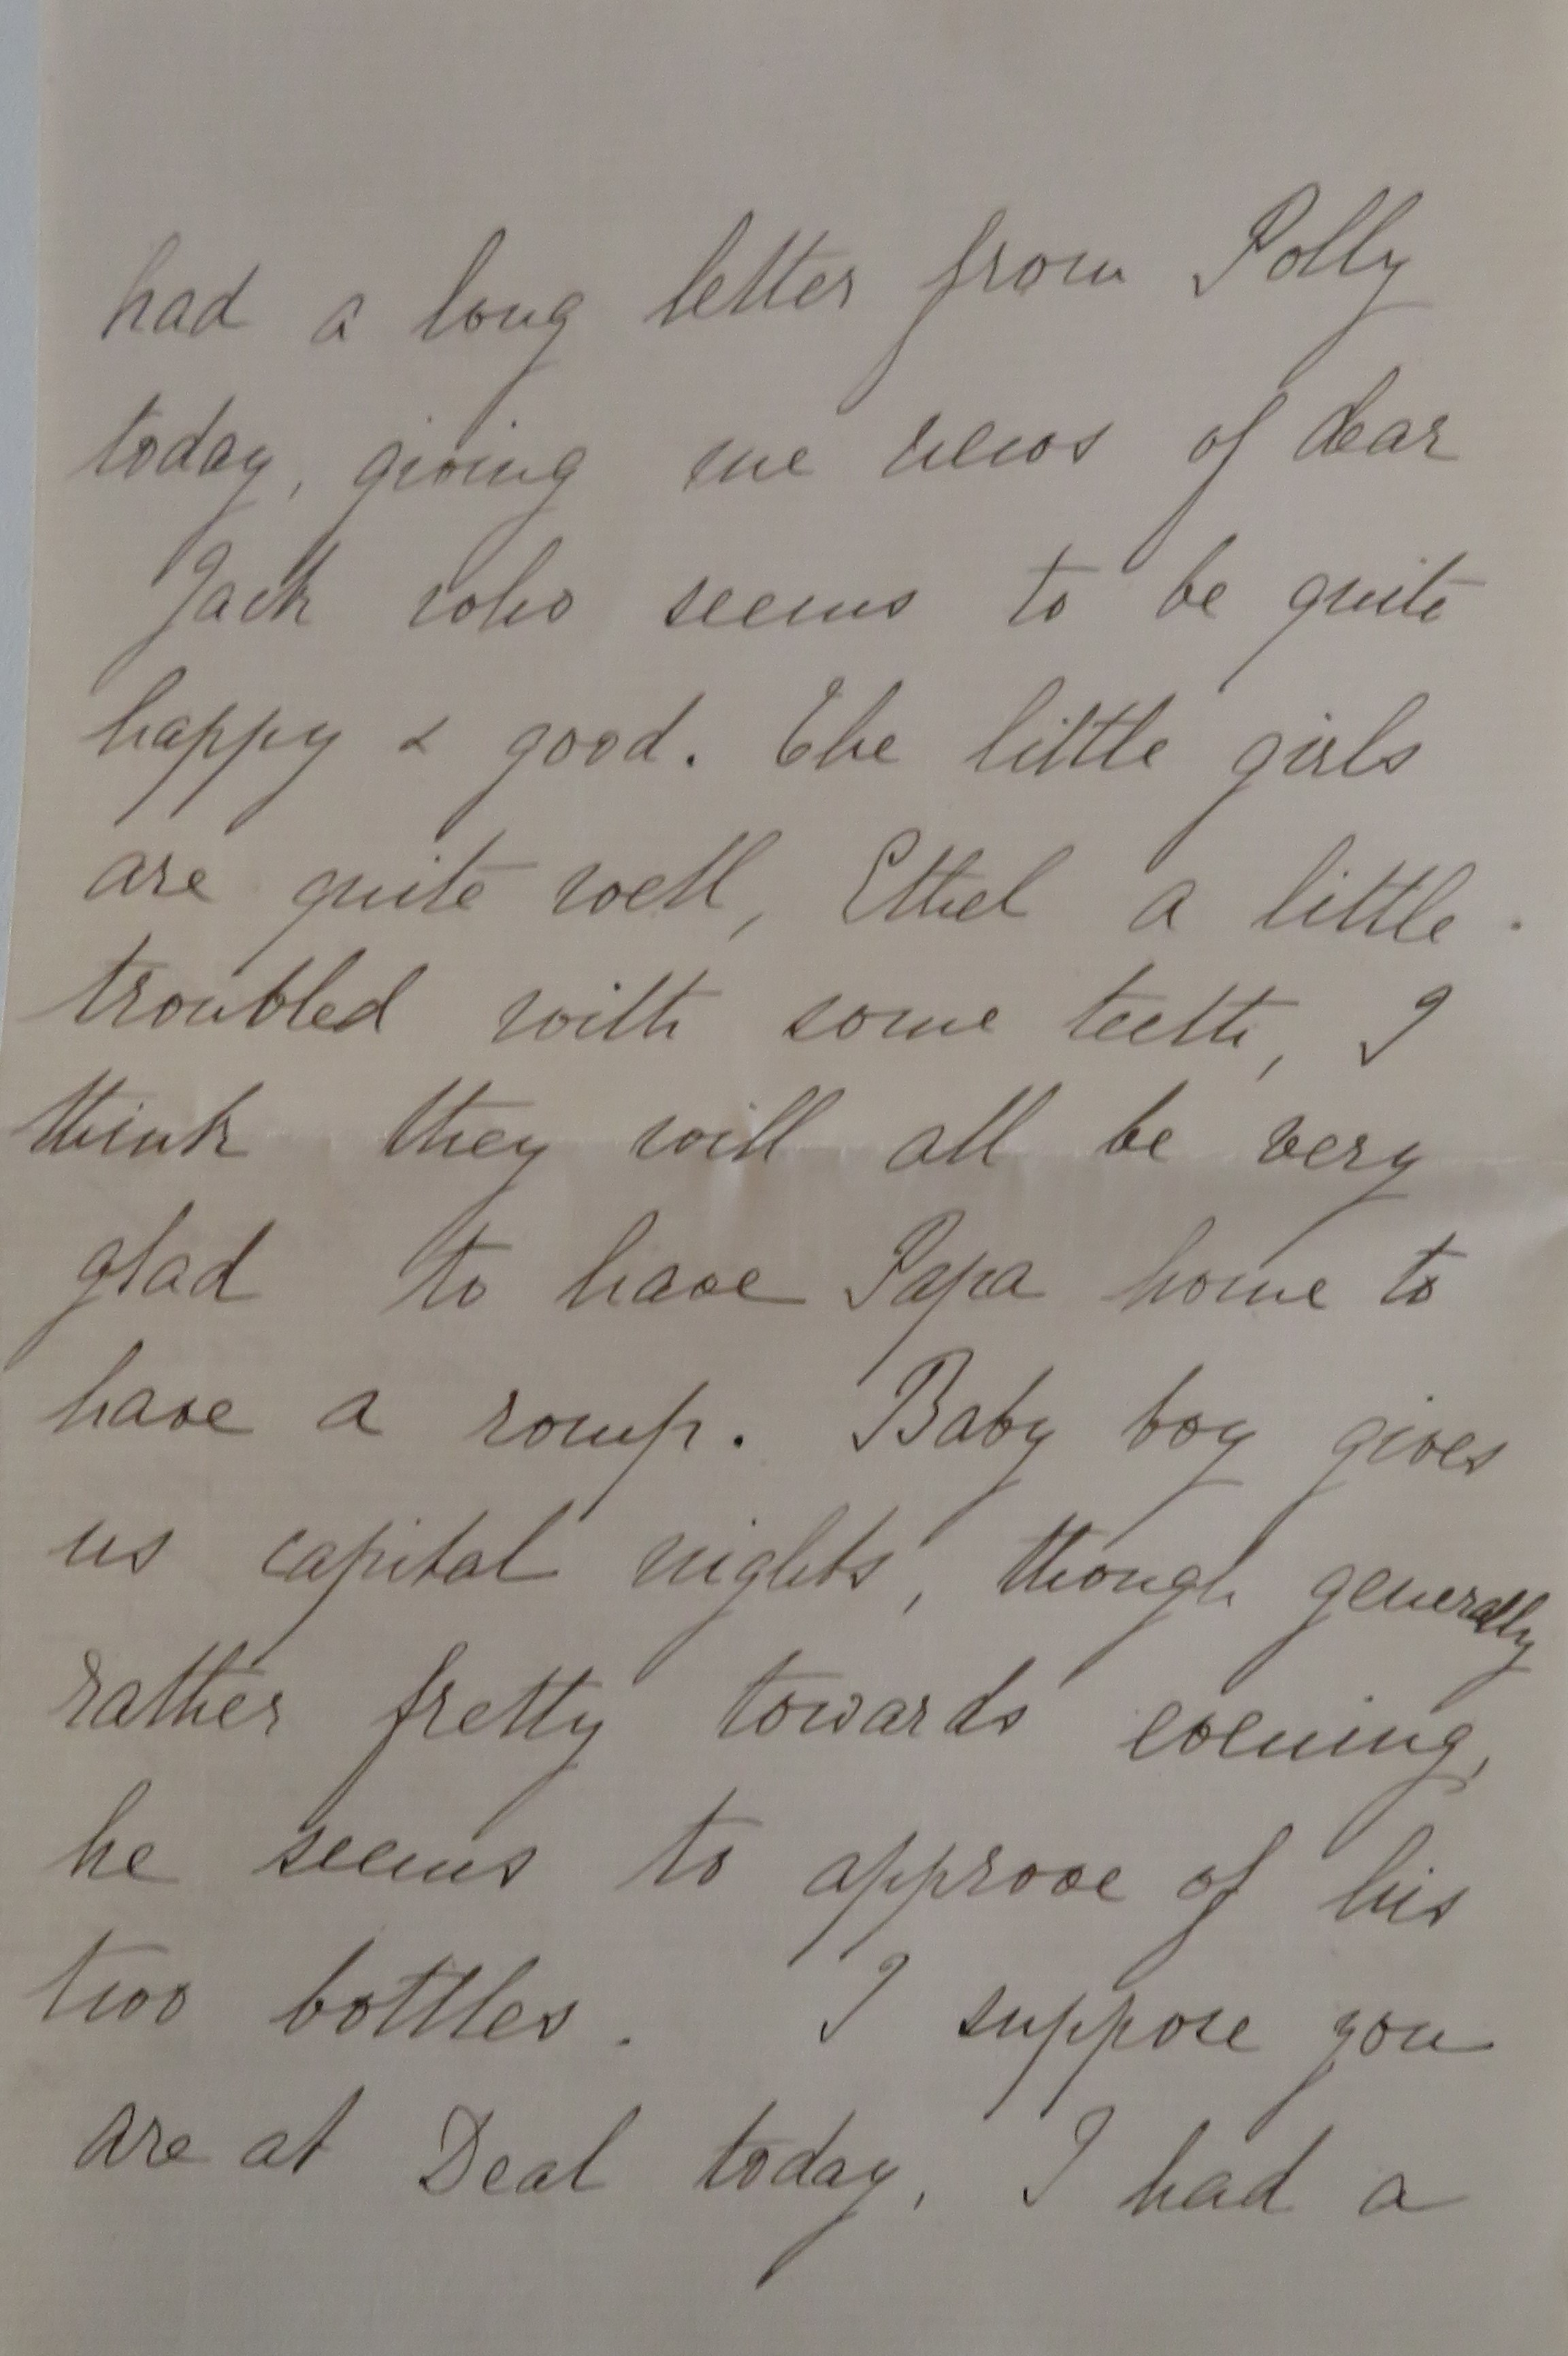 had a long letter from Polly
today, giving me news of dear
Jack who seems to be quite
happy & good. The little girls
are quite well, Ethel a little
troubled with some teeth, I
think they will all be very
glad to have Papa home to
have a romp. Baby boy gives
us capital nights, though generally
rather fretty towards evening,
he seems to approve of his
two bottles. I suppose you
are at Deal today, I had a